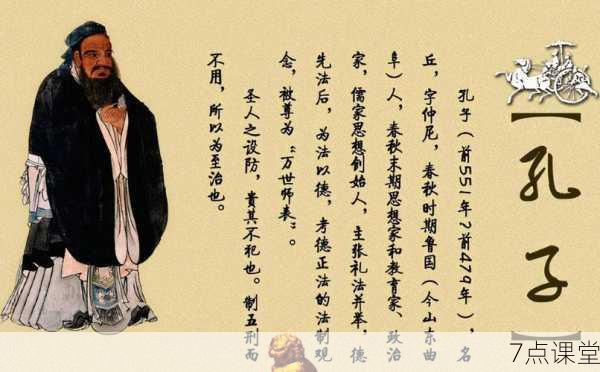 【孔子】
孔子（前551年?前479年），名
丘，字仲尼，春秋时期鲁国（今山东曲
阜）人，春秋末期思想家和教育家、政治
家，儒家思想创始人，主张礼法并举，德
先法后，为法以德，考德正法的法制观
念，被尊为“万世师表”。
圣人之设防，贵其不犯也。制五刑而
不用，所以为至治也。
7点课堂